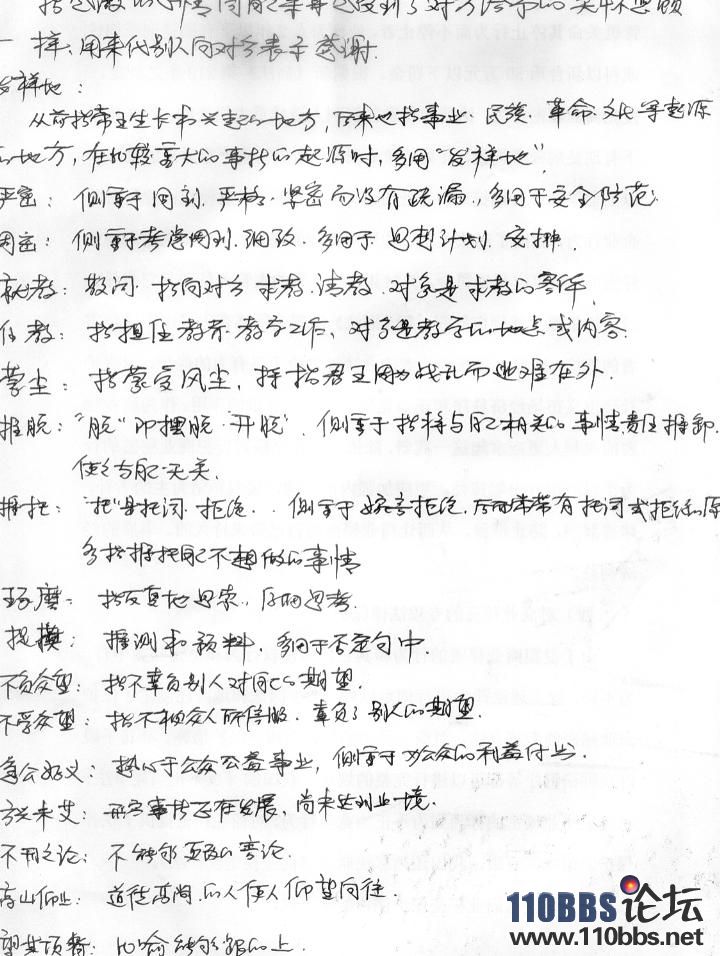 一样,用来代别人向对方表示感谢.
发祥地:
从前指帝王生长和兴起的地方,后来也指事业、民族、革命、文化等起源
的地方,在比较重大的事物的起源时,多用“发祥地”.
严密:侧重于周到、严格、紧密而没有疏漏,多用于安全防范.
周密:侧重于考虑周到、细致、多用于思想计划、安排.
就教:敬词.指向对方求教、请教、对象是求教的客体.
任教:指担任教师教学工作,对象是教学的地点或内容.
蒙尘:指蒙受风尘,指君王因为战乱而逃难在外.
推脱:“脱”即摆脱、开脱.侧重于指将与自己相关的事情责任推卸.
使之与自己无关
推托:“托”是托词、拒绝..侧重于婉言拒绝,后面常带有托词或拒绝的原
多指推托自己不想做的事情
琢磨:指反复地思索、仔细思考.
捉摸:推测和预料,多用于否定句中.
不负众望:指不辜负别人对自己的期望.
不孚众望:指不被众人所信服.辜负了别人的期望.
急公好义:热心于公众公益事业,侧重于对公众的利益付出.
方兴未艾:形容事物正在发展,尚未达到止境.
不刊之论:不能够更改的言论.
高山仰止:道德高尚的人使人仰望向往.
望其项背:比喻能够跟的上.
110BBS论坛
www.110bbs.net